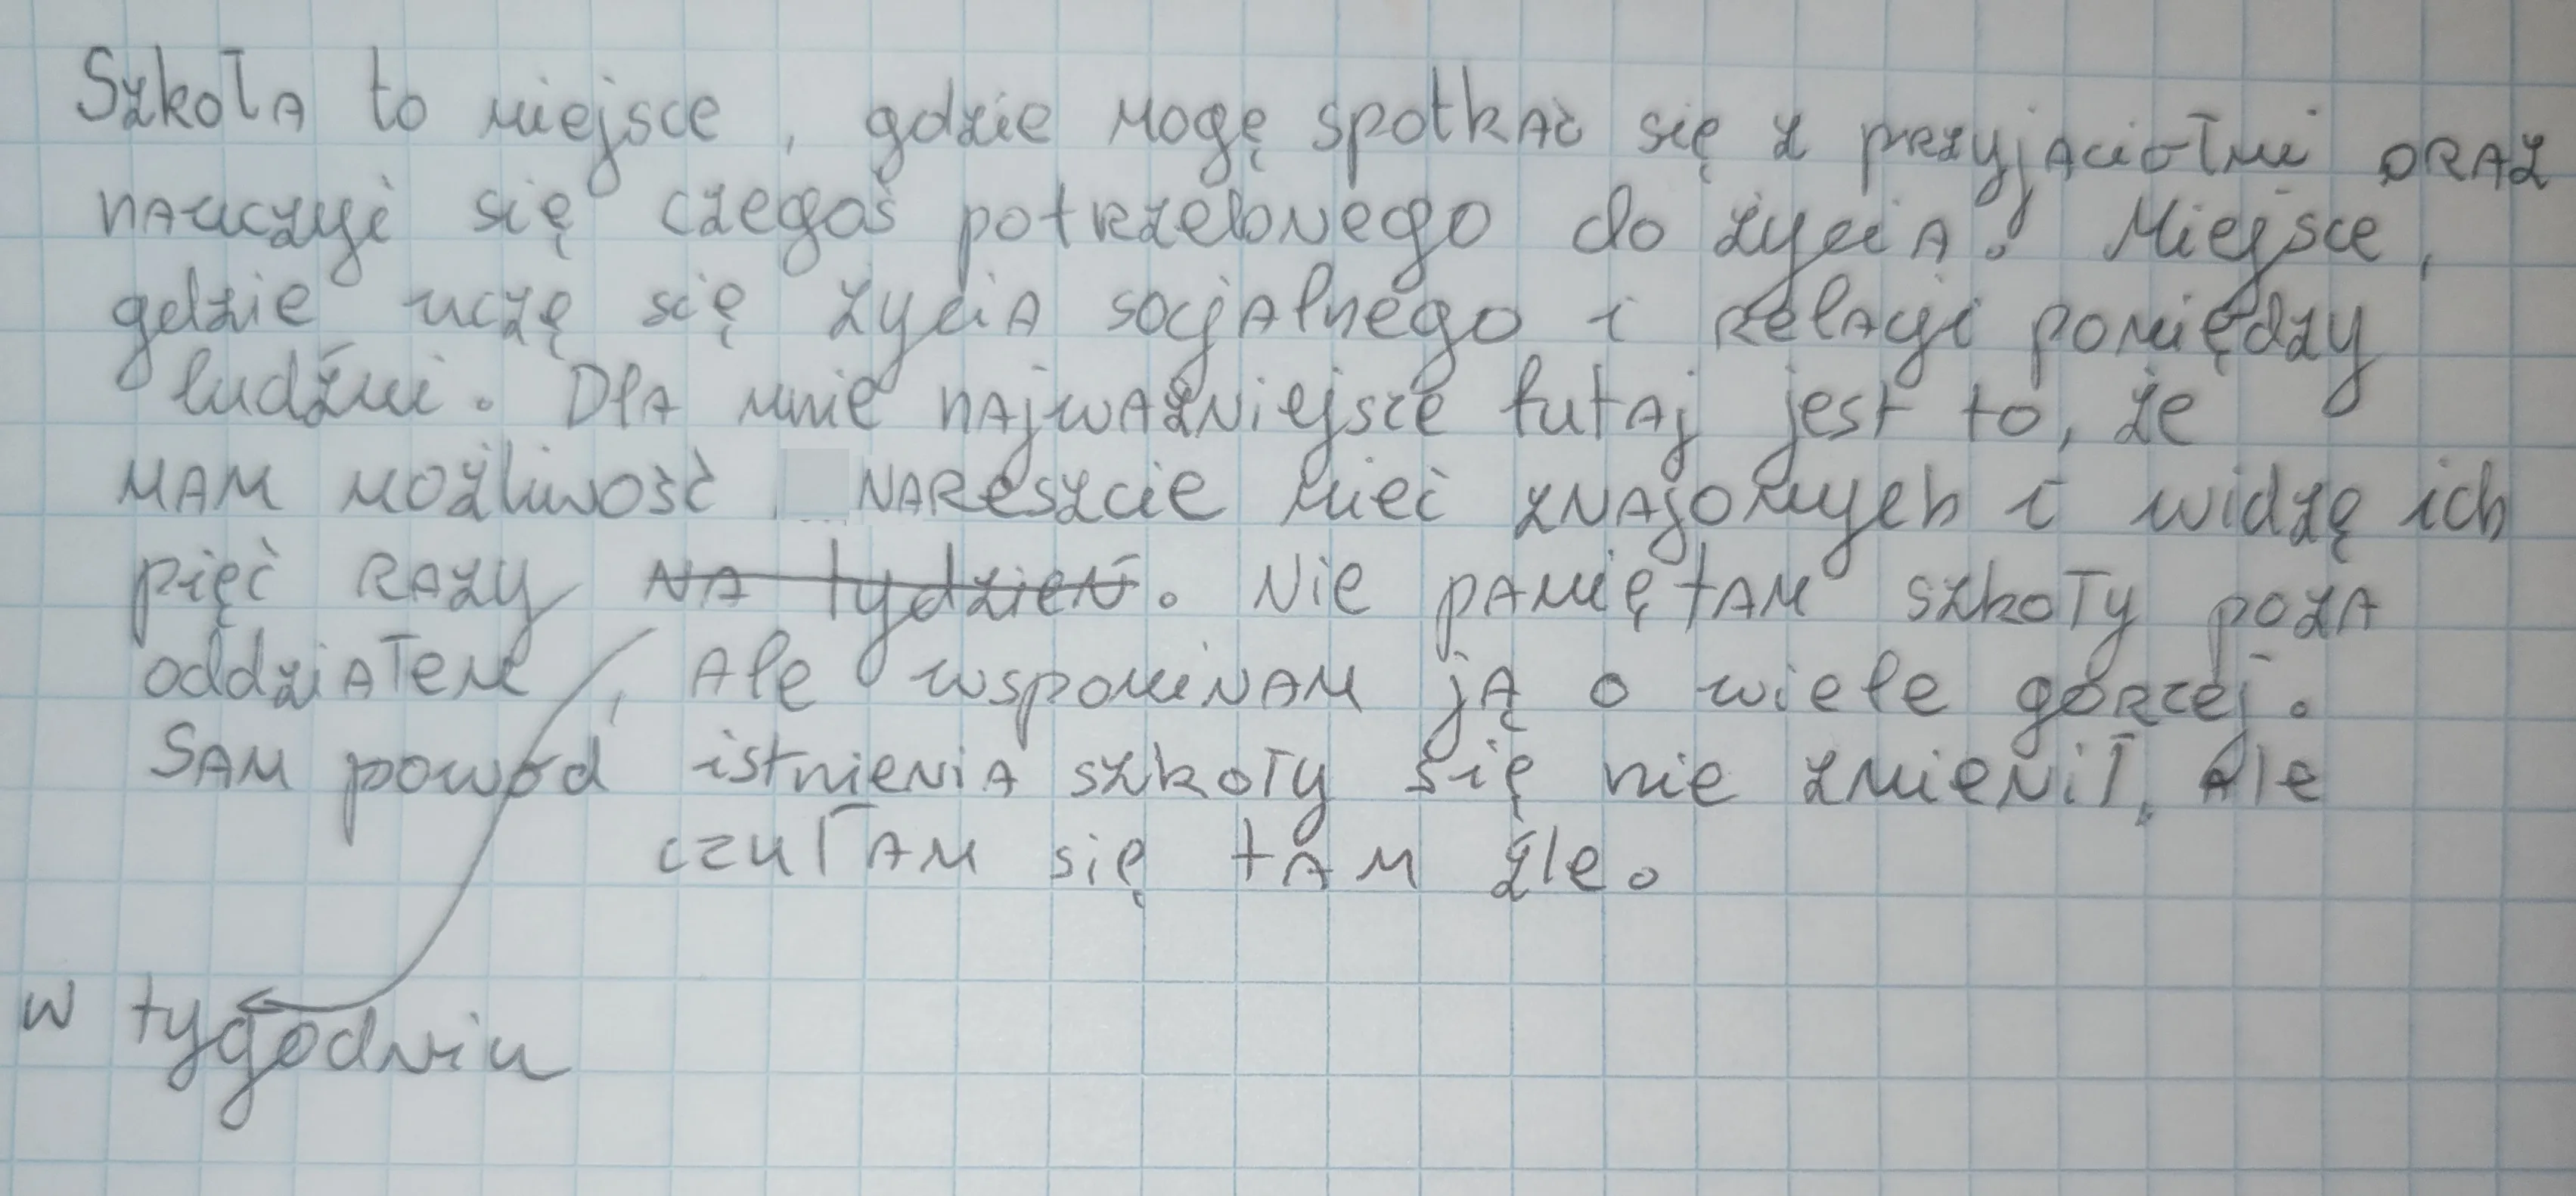 Szkoła to miejsce, gdzie mogę spotkać się z przyjaciółmi oraz
nauczyć się czegoś potrzebnego do życia. Miejsce,
gdzie uczę się życia socjalnego i relacji pomiędzy
ludźmi. Dla mnie najważniejsze tutaj jest to, że
mam możliwość nareszcie mieć znajomych i widzę ich
pięć razy na tydzień. Nie pamiętam szkoły poza
oddziałem, ale wspominam ją o wiele gorzej.
Sam powód istnienia szkoły się nie zmienił, ale
czułam się tam źle.
w tygodniu